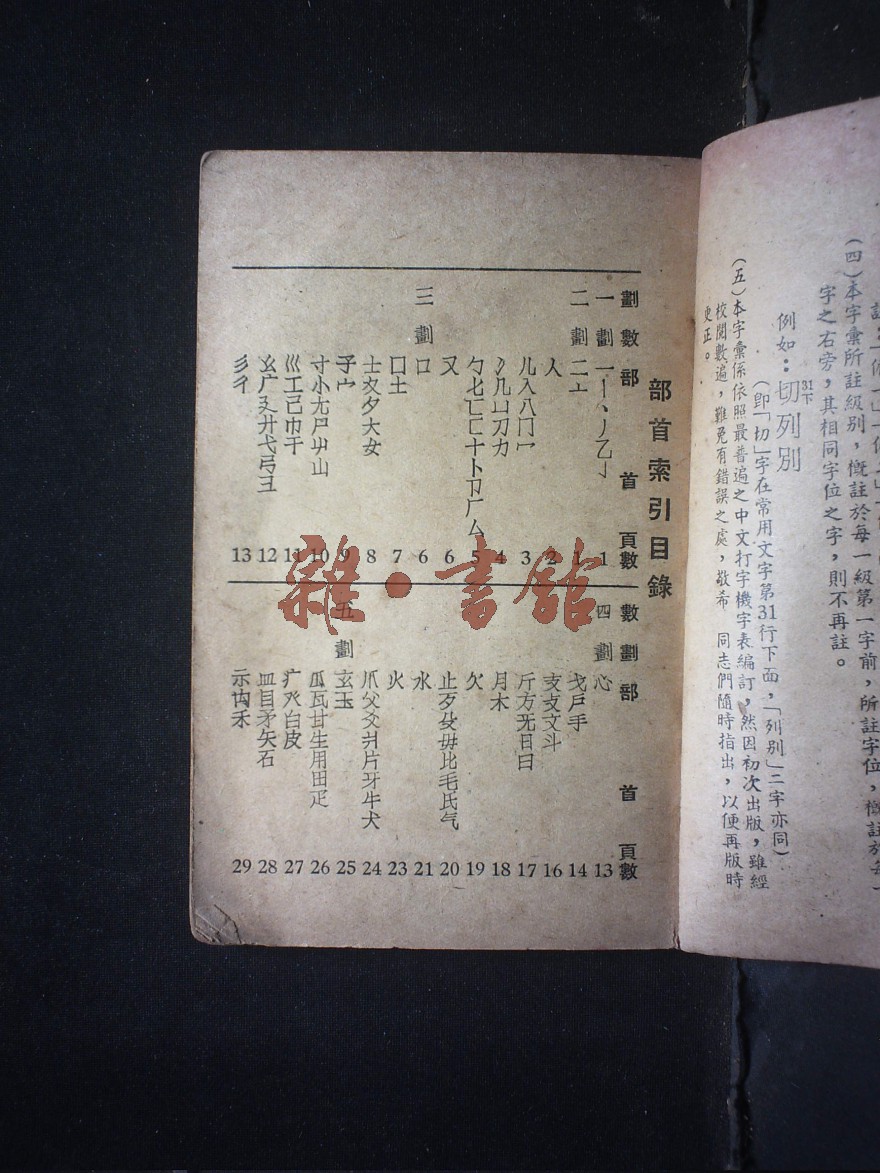 (四)本字彙所註級別,槪註於每一級第一字前,所註字位,槪註於每一
字之右旁,其相同字位之字,則不再註。
例如:切列別
31下
(即「切」字在常用文字第31行下面,「列別」二字亦同)
(五)本字彙係依照最普遍之中文打字機字表編訂,然因初次出版,雖經
校閱數遍,難免有錯誤之處,敬希 同志們隨時指出,以便再版時
更正。
部首索引目錄
劃數 部首 頁數
一劃 一丨丶丿乙亅 1
二劃 二亠 1
人 2
儿入八冂冖 3
冫几凵刀力 4
勹匕匚匸十卜卩厂厶 5
又 6
三劃 口 6
囗土 7
士夊夕大女 8
子宀 9
寸小尢尸屮山 10
巛工己巾干 11
幺广廴廾弋弓彐 12
彡彳 13
數劃 部首 頁數
四劃 心 13
戈戶手 14
支攴文斗 16
斤方无日曰 17
月木 18
欠 19
止歹殳毋比毛氏气 20
水 21
火 23
爪父爻爿片牙牛犬 24
五劃 玄玉 25
瓜瓦甘生用田疋 26
疒癶白皮 27
皿目矛矢石 28
示禸禾 29
雜·書館